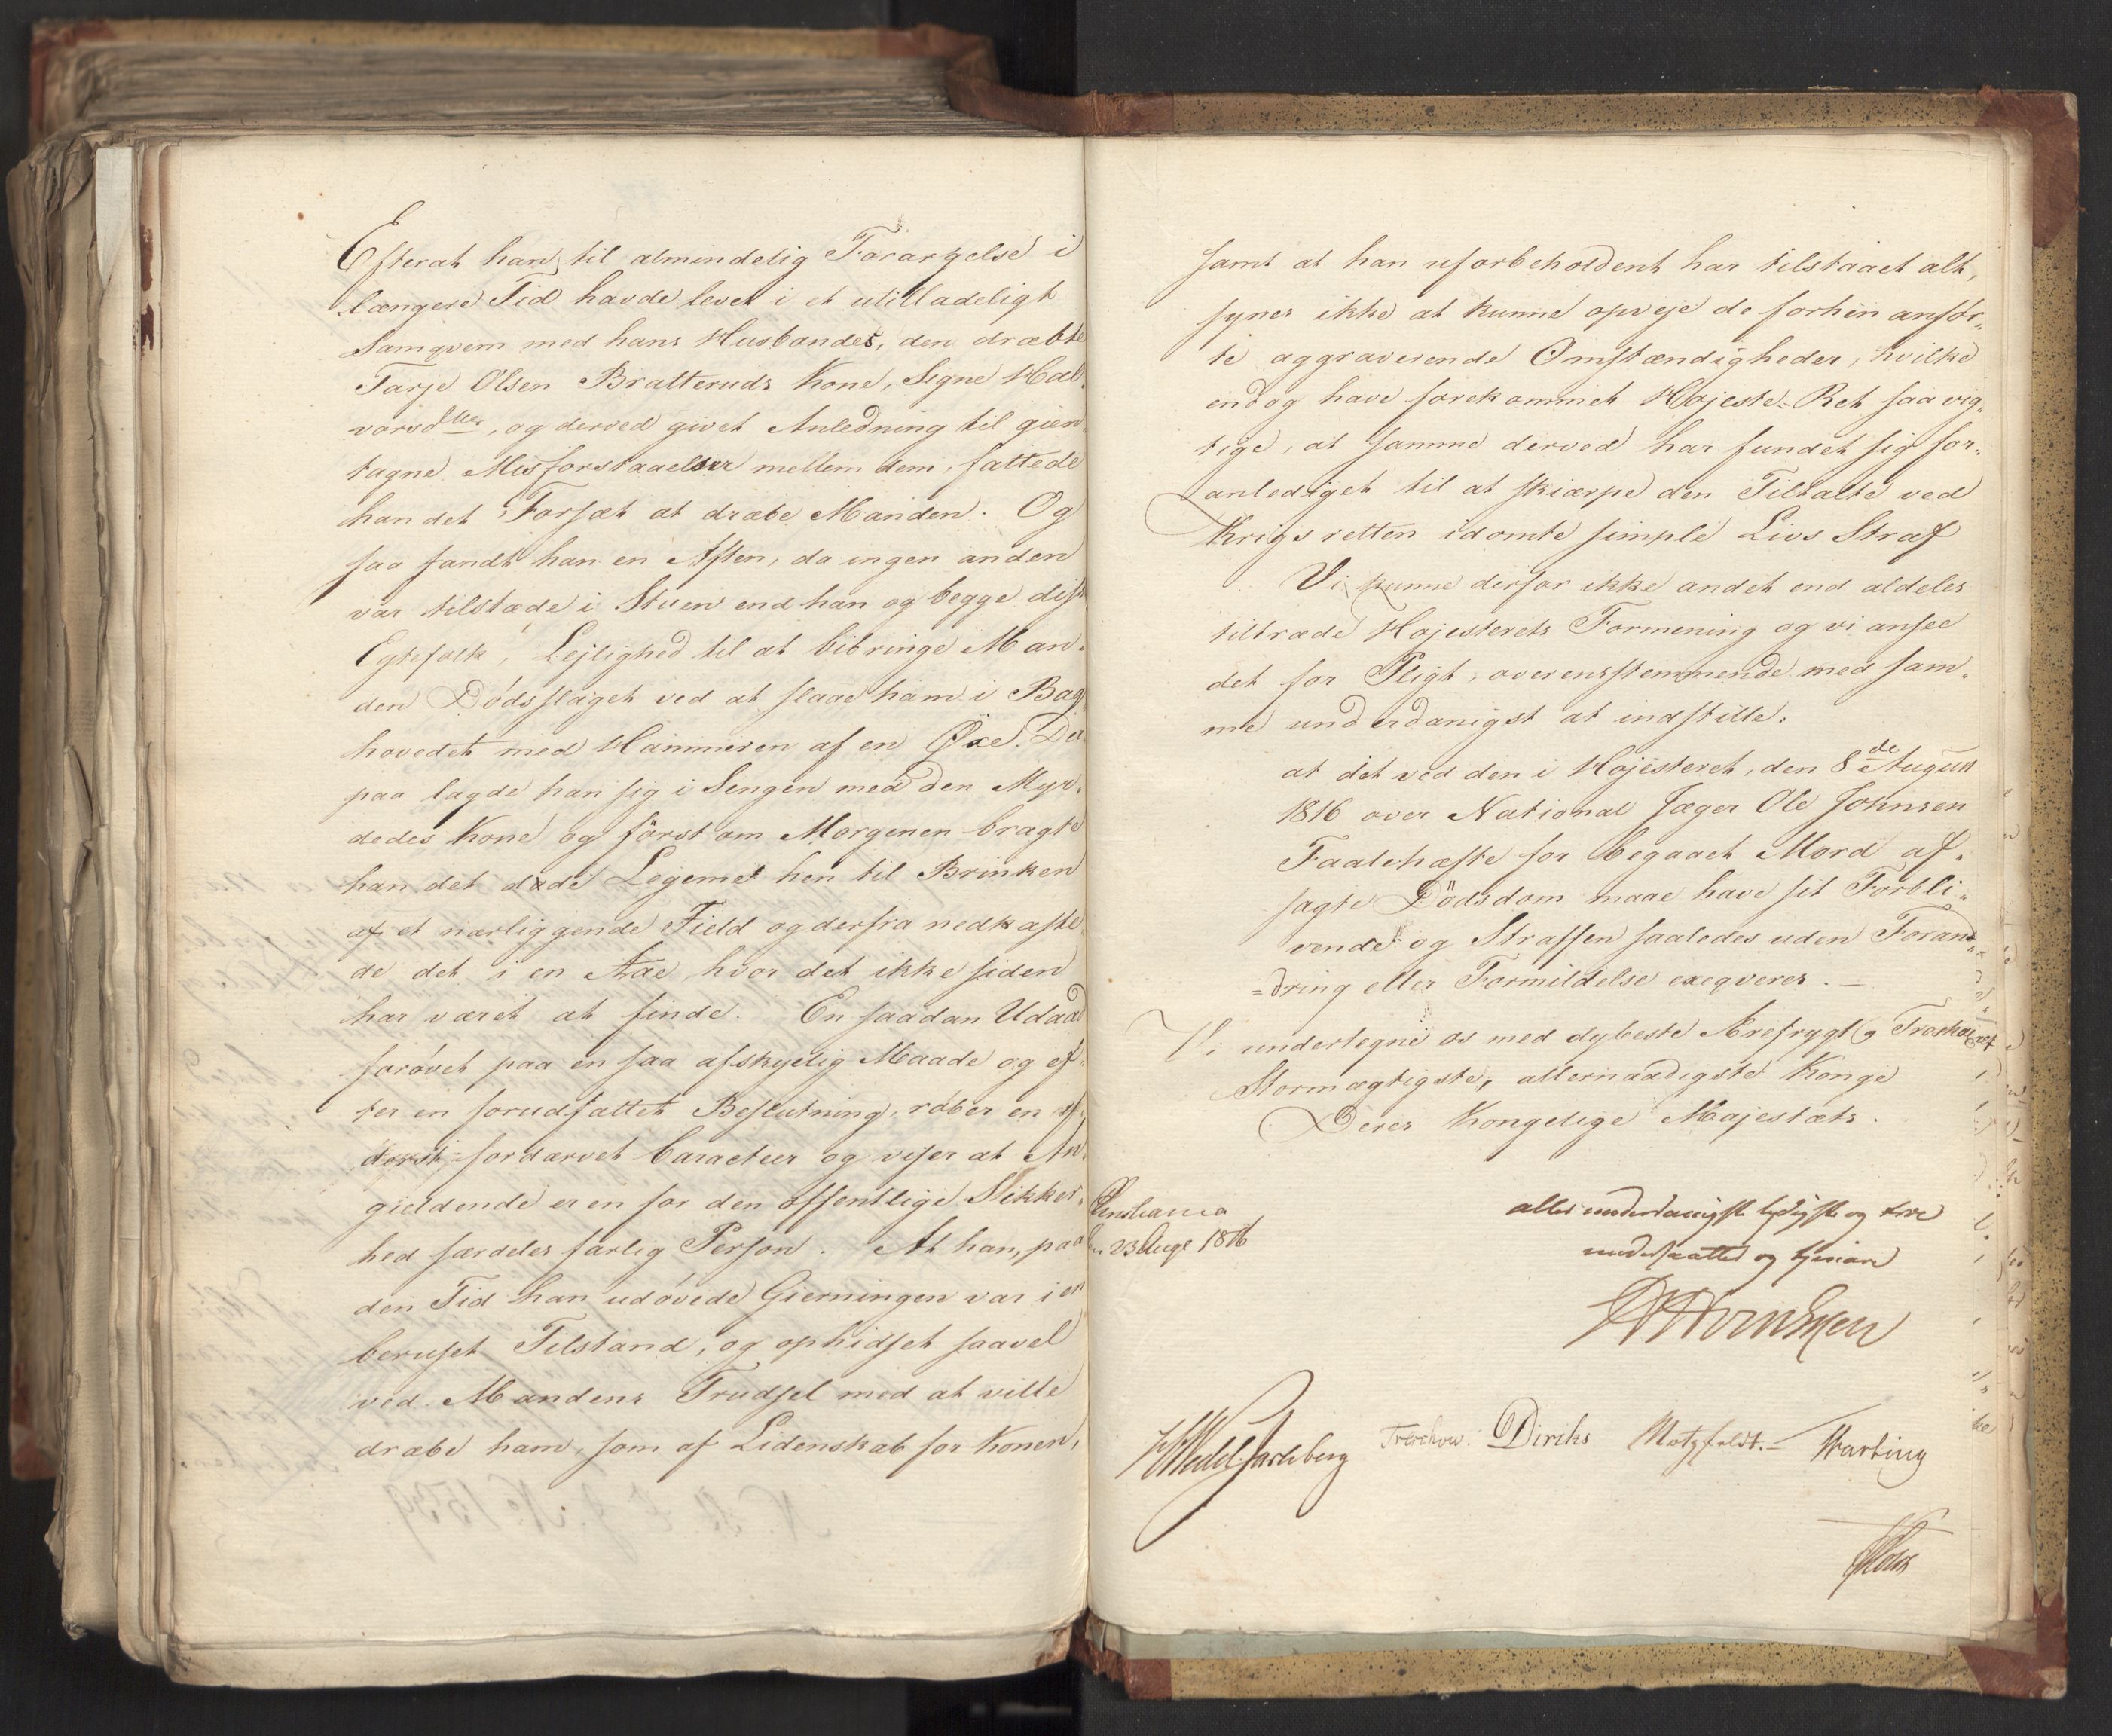 Efterat han, til almindelig Forargelse i
længere Tid havde levet i et utilladeligt
Samqvem med hans Husbondes, den dræbte
Tarje Olsen Bratteruds Kone, Signe Hal-
vorsdtter, og derved givet Anledning til gien-
tagne Misforstaaelser mellem dem, fattede
han det Forsæt at dræbe Manden. Og
saa fandt han en Aften, da ingen anden
var tilstæde i Stuen end han og begge disse
Egtefolk, Lejlighed til at bibringe Man-
den Dødsslaget ved at slaae ham i Bag-
hovedet med Hammeren af en Øxe. Der-
paa lagde han sig i Sengen med den Myr-
dedes Kone og først om Morgenen bragte
han det døde Legeme hen til Brinken
af et nærliggende Field og derfra nedkaste-
de det i en Aae, hvor det ikke siden
har været at finde. En saadan Udaad
forøvet paa en saa afskyelig Maade og ef-
ter en forudfattet Beslutning, røber en
yderst fordærvet Caracteer og viser at An-
gieldende er en for den offentlige Sikker-
hed særdeles farlig Person. At han, paa
den Tid han udøvede Gierningen var i en
beruset Tilstand, og ophidset saavel
ved Mandens Trudsel med at ville
dræbe ham, som af Lidenskab for Konen,
samt at han uforbeholdent har tilstaaet alt,
synes ikke at kunne opveje de forhen anfør-
te aggraverende Omstændigheder, hvilke
endog have forekommet Højeste-Ret saa vig-
tige, at samme derved har fundet sig for-
anlediget til at skiærpe den Tiltalte ved
Krigsretten idømte simple Livs Straf
Vi kunne derfor ikke andet end aldeles
tiltræde Højesterets Formening og vi ansee
det for Pligt, overensstemmende med sam-
me underdanigst at indstille:
at det ved den i Højesteret, den 8de August
1816 over National Jæger Ole Johnsen
Faalehæfte for begaaet Mord af-
sagte Dødsdom maae have sit Forbli-
vende og Straffen saaledes uden Foran-
=dring eller Formildelse exeqveres. —
Vi undertegne os med dybeste Ærefrygt og Troskab
Stormægtigste, allernaadigste Konge
Deres Kongelige Majestæts.
Christiania
den 23 Aug 1816
allerunderdanigste lydigste og troe
undersaatter og tjenere
Wedel Jarlsberg Treschow. Diriks Motzfeldt.— Krarting